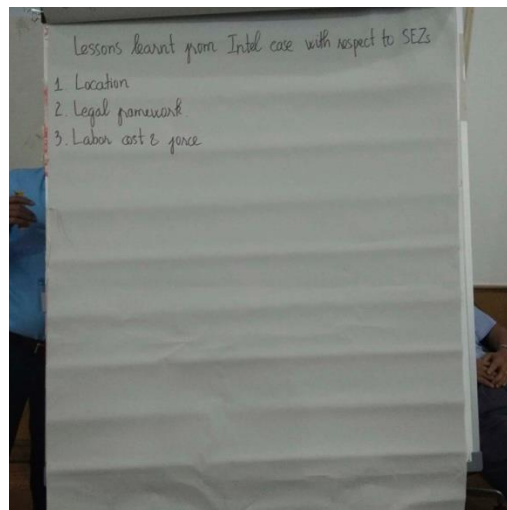 Lessons learnt from Intel case with respect to SEZs
1. Location
2. Legal framework.
3. Labor cost & force